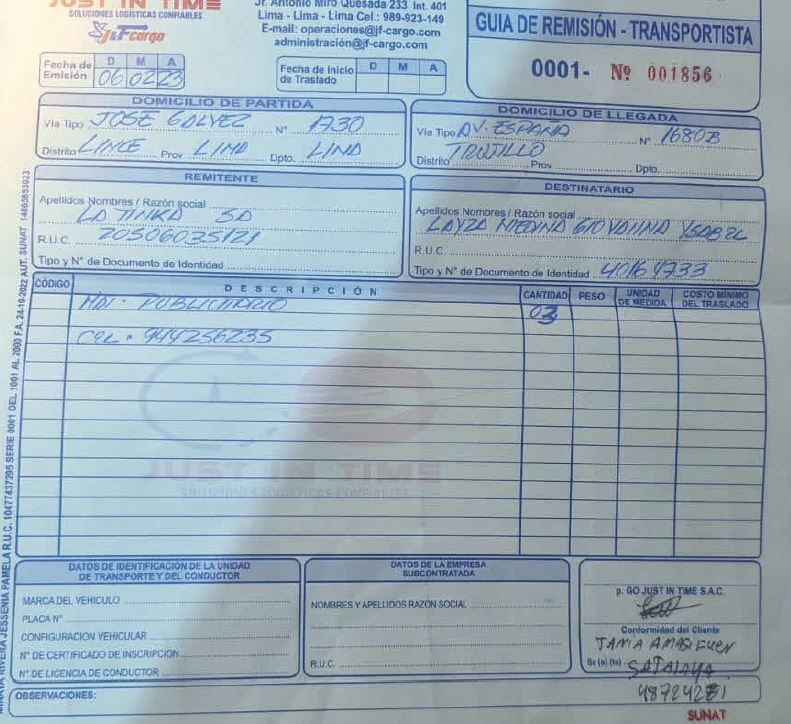 JUST IN TIME
SOLUCIONES LOGÍSTICAS CONFIABLES
J&F cargo
Jr. Antonio Miró Quesada 233 Int. 401
Lima - Lima - Lima Cel.: 989-923-149
E-mail: operaciones@jf-cargo.com
administración@jf-cargo.com
GUIA DE REMISIÓN - TRANSPORTISTA
0001- Nº 001856
Fecha de Emisión D M A
06 02 23
Fecha de Inicio de Traslado D M A
DOMICILIO DE PARTIDA
Vía Tipo JOSE GALVEZ Nº 1730
Distrito LINCE Prov LIMA Dpto. LIMA
DOMICILIO DE LLEGADA
Vía Tipo AV. ESPAÑA Nº 1680B
Distrito TRUJILLO Prov Dpto.
REMITENTE
Apellidos Nombres / Razón social
LA TINKA SA
R.U.C. 20506035121
Tipo y N° de Documento de Identidad
DESTINATARIO
Apellidos Nombres / Razón social
LAYZA MEDINA GIOVANNA YSABEL
R.U.C.
Tipo y N° de Documento de Identidad 40164733
CÓDIGO DESCRIPCIÓN CANTIDAD PESO UNIDAD DE MEDIDA COSTO MÍNIMO DEL TRASLADO
MAT. PUBLICITARIO 03
CEL. 944256235
JUST IN TIME
SOLUCIONES LOGÍSTICAS CONFIABLES
DATOS DE IDENTIFICACIÓN DE LA UNIDAD DE TRANSPORTE Y DEL CONDUCTOR
MARCA DEL VEHICULO
PLACA N°
CONFIGURACION VEHICULAR
N° DE CERTIFICADO DE INSCRIPCION
N° DE LICENCIA DE CONDUCTOR
DATOS DE LA EMPRESA SUBCONTRATADA
NOMBRES Y APELLIDOS RAZON SOCIAL
R.U.C.
p. GO JUST IN TIME S.A.C.
Conformidad del Cliente
TANIA AMASIFUEN
Sr (a) (ta) SATALAYA
48724281
OBSERVACIONES:
SUNAT
PAMELA R.U.C. 10477437295 SERIE 0001 DEL 1001 AL 2000 F.A. 24-10-2022 AUT. SUNAT 14665853023